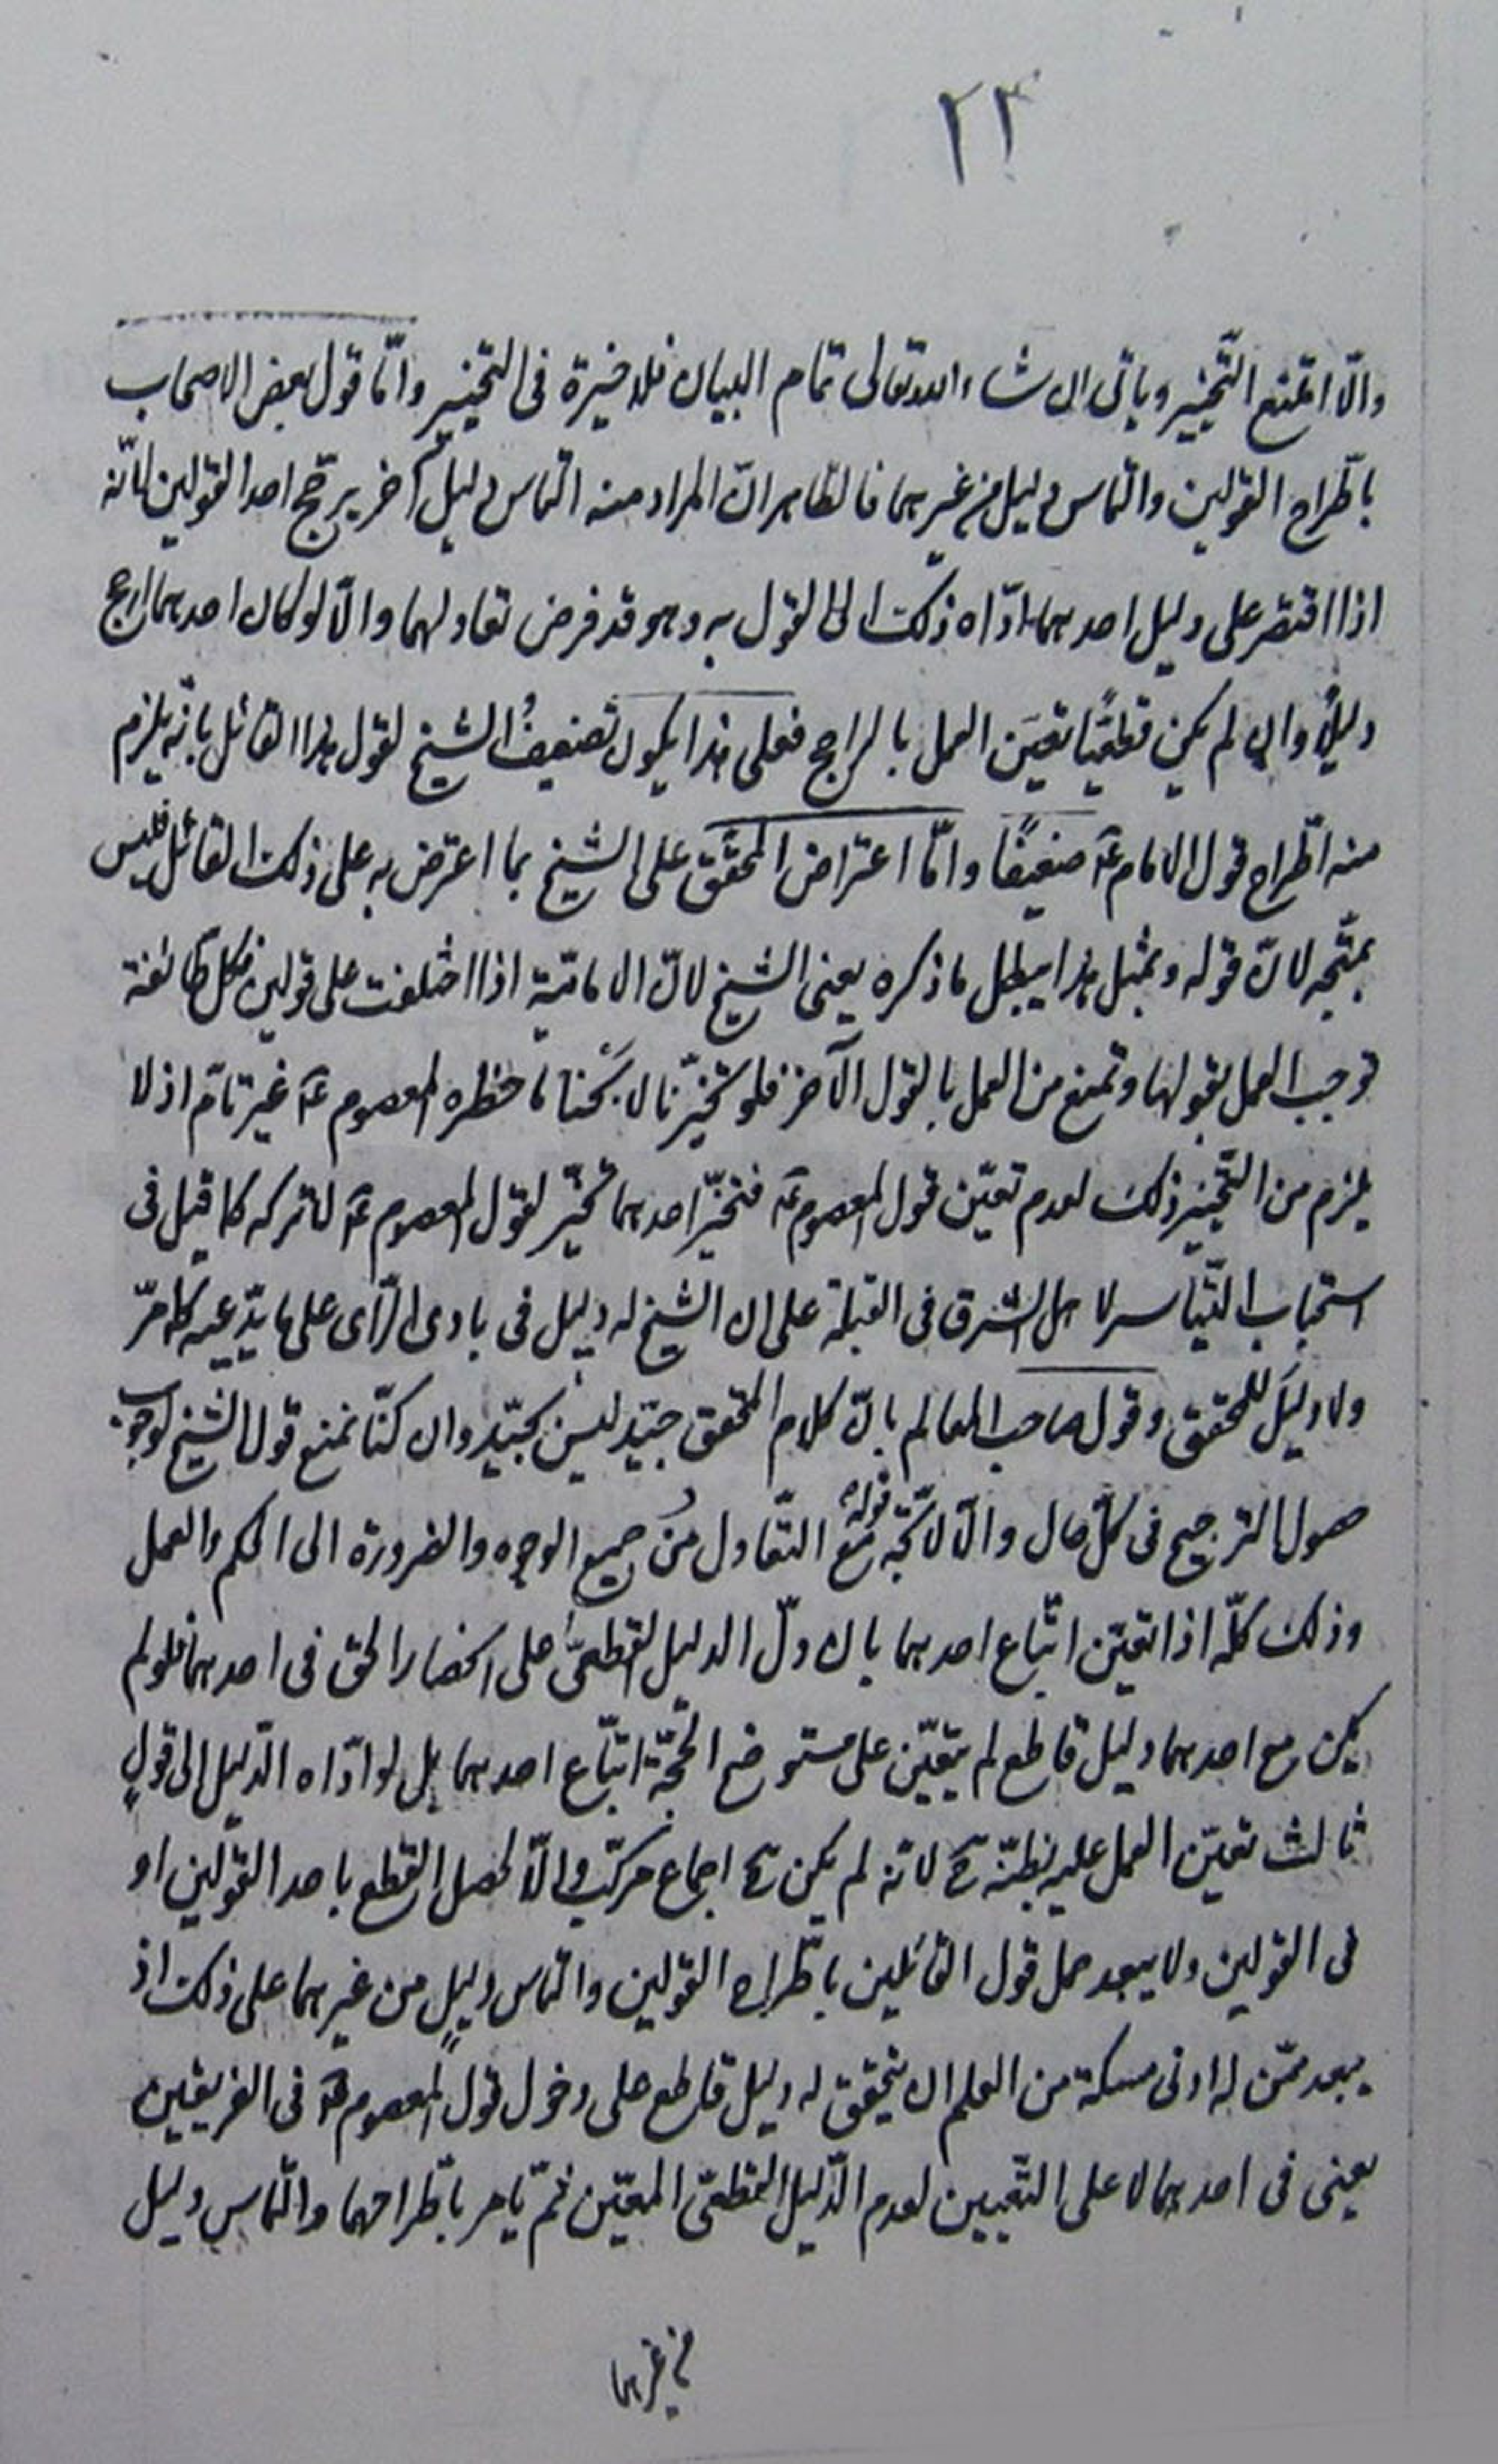 ٢٣
والّا امتنع التّخيير وياتى ان شاء الله تعالى تمام البيان فلا خيرة فى التخيير وامّا قول بعض الاصحاب
باطّراح القولين والتماس دليل من غيرهما فالظّاهر انّ المراد منه التماس دليل آخر يرجّح احد القولين لانّه
اذا اقتصر على دليل احدهما ادّاه ذلك الى القول به وهو قد فرض تعادلهما والّا لو كان احدهما ارجح
دليلًا وان لم يكن قطعيًّا تعيّن العمل بالراجح فعلى هذا يكون تضعيفُ الشيخ لقول هذا القائل بانّه يلزم
منه اطّراح قول الامام عَ ضعيفًا وامّا اعتراض المحقّق على الشيخ بما اعترض به على ذلك القائل فليس
بمتّجه لانّ قوله وبمثل هذا يبطل ما ذكره يعنى الشيخ لانّ الاماميّة اذا اختلفت على قولين فكل طائفة
توجب العمل بقولها وتمنع من العمل بالقول الآخر فلو تخيّرنا لاستبحنا ما حظره المعصوم عَ غير تامّ اذ لا
يلزم من التّخيير ذلك لعدم تعيّن قول المعصوم عَ فتخيّر احدهما تخيّر لقول المعصوم عَ لا تركه كما قيل فى
استحباب التّياسر لاهل الشرق فى القبلة على ان الشيخ له دليل فى بادى الرّاى على ما يدّعيه كما مرّ
ولا دليلَ للمحقق وقول صاحب المعالم بانّ كلام المحقق جيّد ليس بجيّد وان كنّا نمنع قول الشيخ لوجوب
حصول الترجيح فى كلّ حال والّا لاتّجه قوله مع التّعادل من جميع الوجوه والضرورة الى الحكم والعمل
وذلك كلّه اذا تعيّن اتّباع احدهما بان دلّ الدليل القطعىّ على انحصار الحق فى احدهما فلو لم
يكن مع احدهما دليل قاطع لم يتعيّن على مستوضح الحجّة اتّباع احدهما بل لو ادّاه الدّليل الى قولٍ
ثالث تعيّن العمل عليه بظنّه ح لانّه لم يكن ح اجماع مركّب والّا لحصل القطع باحد القولين او
فى القولين ولا يبعد حمل قول القائلين باطّراح القولين والتماس دليلٍ من غيرهما على ذلك اذ
يبعد ممّن له ادنى مسكة من العلم ان يتحقق له دليل قاطع على دخول قول المعصوم عَ فى الفريقين
يعنى فى احدهما لا على التّعيين لعدم الدّليل القطعىّ المعيّن ثمّ يامر باطّراحهما والتماس دليل
من غيرهما